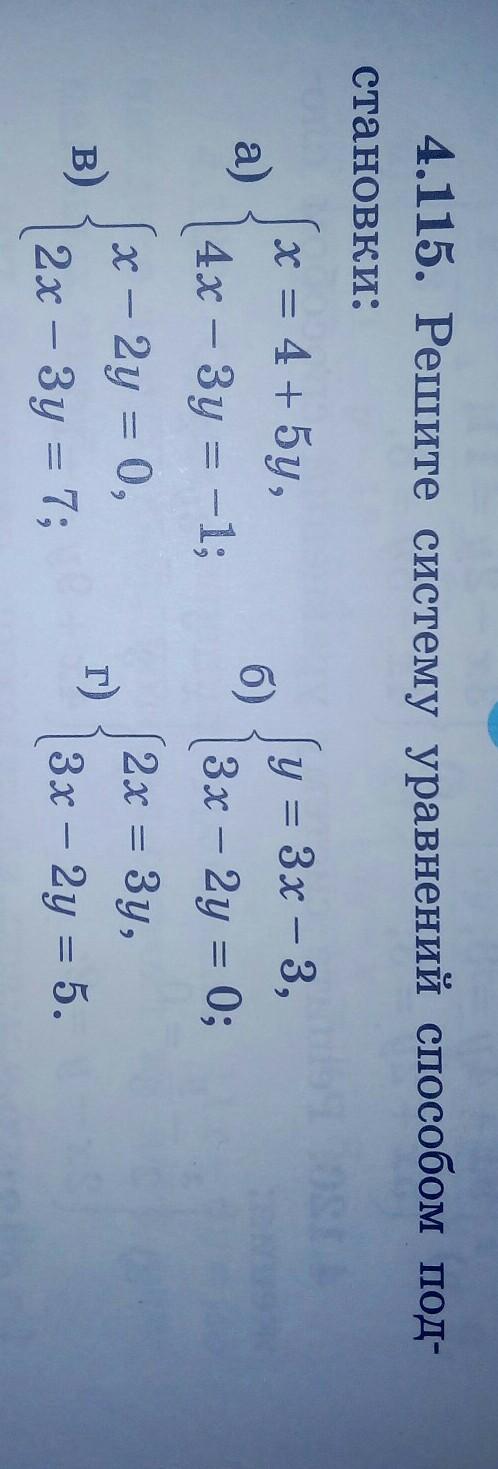 4.115. Решите систему уравнений способом под-
становки:
а) { x = 4 + 5y,
4x − 3y = −1;
б) { y = 3x − 3,
3x − 2y = 0;
в) { x − 2y = 0,
2x − 3y = 7;
г) { 2x = 3y,
3x − 2y = 5.